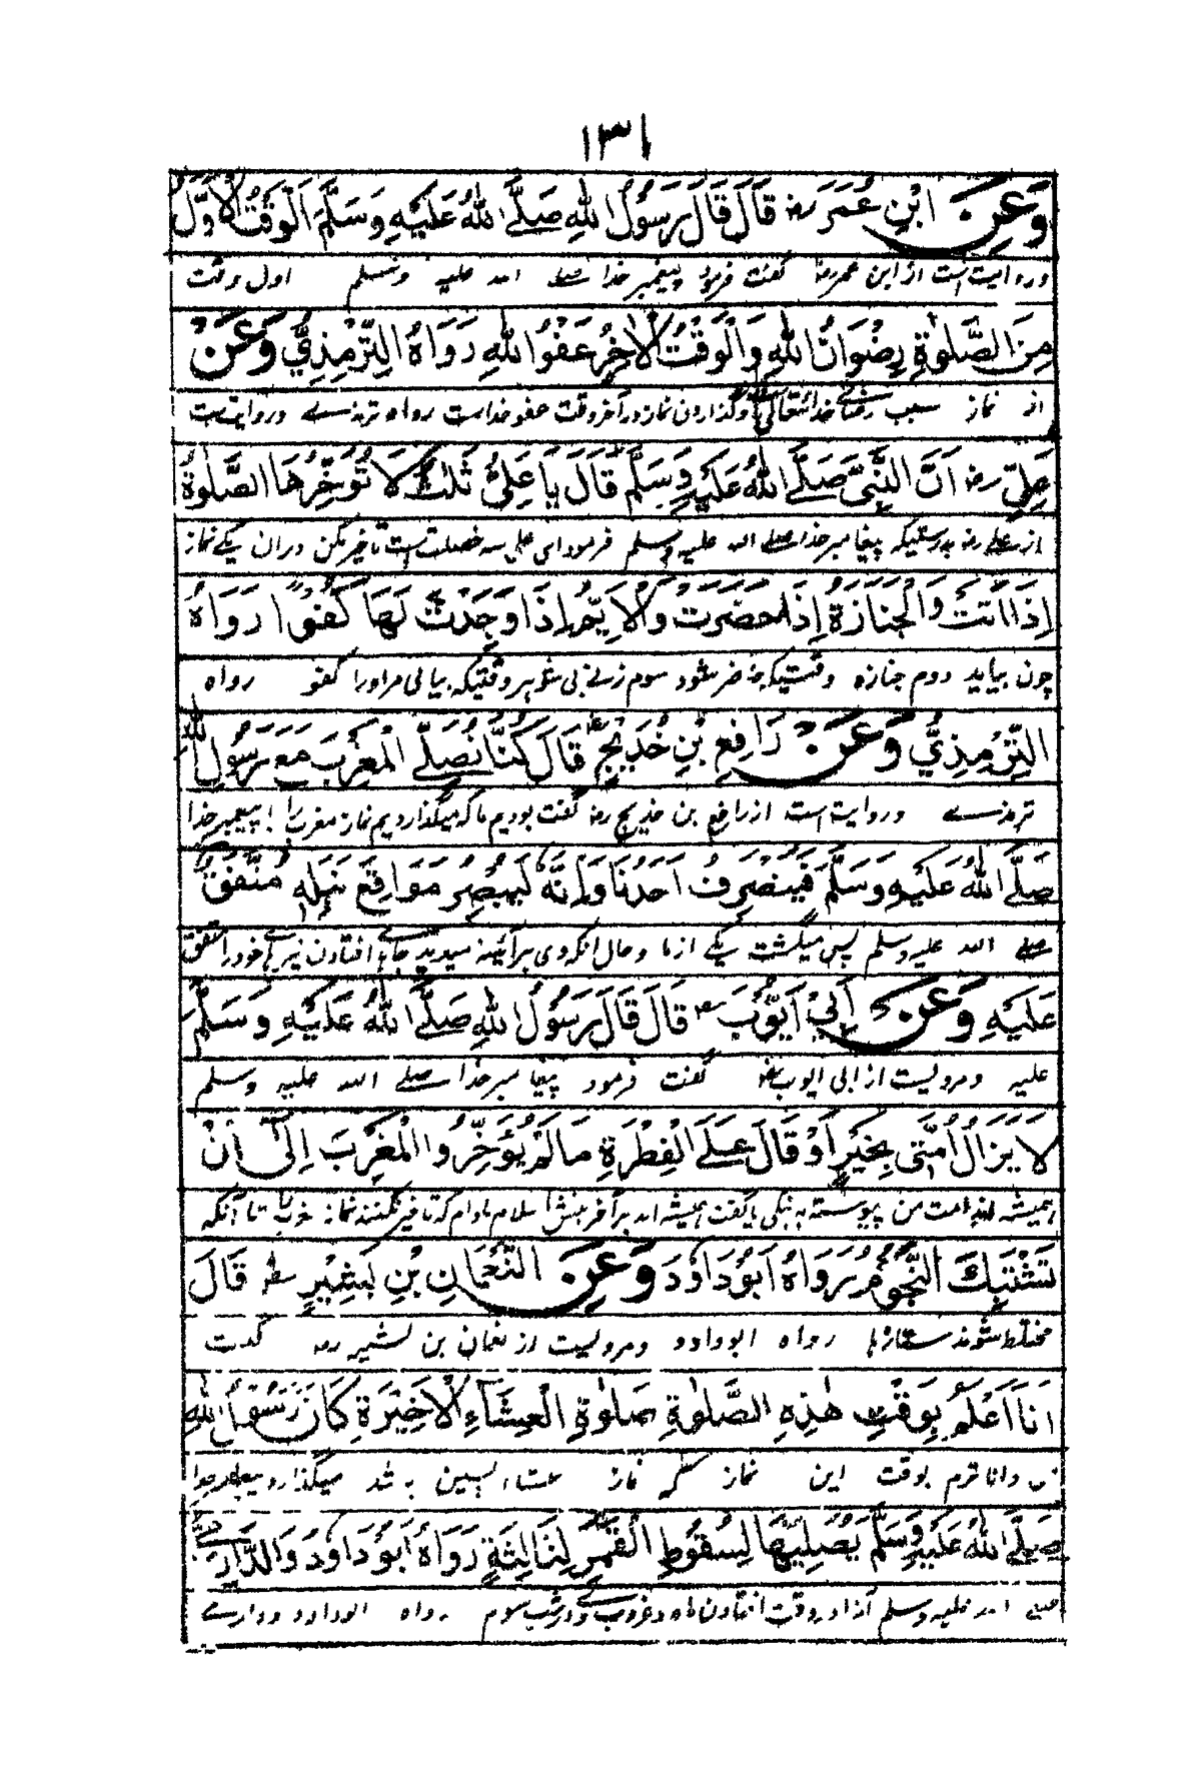 ۱۳۱
وَعَنِ ابْنِ عُمَرَ رض قَالَ قَالَ رَسُوْلُ اللهِ صَلَّے اللهُ عَلَيْهِ وَسَلَّمَ الْوَقْتُ الْاَوَّلُ
وروایت است از ابن عمر رض گفت فرمود پیغمبر خدا صلے الله علیه وسلم اول وقت
مِنَ الصَّلٰوةِ رِضْوَانُ اللهِ وَالْوَقْتُ الْاٰخِرُ عَفْوُ اللهِ رَوَاهُ التِّرْمِذِيُّ وَعَنْ
از نماز سبب رضاے خدائتعالی و گذاردن نماز در آخر وقت عفو خداست رواه ترمذے وروایت است
عَلِيٍّ رض اَنَّ النَّبِيَّ صَلَّے اللهُ عَلَيْهِ وَسَلَّمَ قَالَ يَا عَلِيُّ ثَلٰثٌ لَا تُؤَخِّرْهَا الصَّلٰوةُ
از علے رض بدرستیکه پیغامبر خدا صلے الله علیه وسلم فرمود ای علی سه خصلت است تاخیر مکن دران یکے نماز
اِذَا اَتَتْ وَالْجَنَازَةُ اِذَا حَضَرَتْ وَالْاَيِّمُ اِذَا وَجَدْتَّ لَهَا كُفُوًا رَوَاهُ
چون بیاید دوم جنازه وقتیکه حاضر شود سوم زنے بی شوهر وقتیکه بیابی مر او را کفو رواه
التِّرْمِذِيُّ وَعَنْ رَافِعِ بْنِ خَدِيْجٍ رض قَالَ كُنَّا نُصَلِّے الْمَغْرِبَ مَعَ رَسُوْلِ اللهِ
ترمذے وروایت است از رافع بن خدیج رض گفت بودیم ما که میگذاردیم نماز مغرب را با پیغمبر خدا
صَلَّے اللهُ عَلَيْهِ وَسَلَّمَ فَيَنْصَرِفُ اَحَدُنَا وَاِنَّهٗ لَيُبْصِرُ مَوَاقِعَ نَبْلِهٖ مُتَّفَقٌ
صلے الله علیه وسلم پس میگشت یکے از ما و حال آنکه وی هرآئینه میدید جاے افتادن تیرهاے خود را متفق
عَلَيْهِ وَعَنْ اَبِيْ اَيُّوْبَ رض قَالَ قَالَ رَسُوْلُ اللهِ صَلَّے اللهُ عَلَيْهِ وَسَلَّمَ
علیه و مرویست از ابی ایوب رض گفت فرمود پیغامبر خدا صلے الله علیه وسلم
لَا يَزَالُ اُمَّتِي بِخَيْرٍ اَوْ قَالَ عَلَے الْفِطْرَةِ مَا لَمْ يُؤَخِّرُوا الْمَغْرِبَ اِلٰى اَنْ
همیشه امت من پیوسته به نیکی یا گفت همیشه اند بر آفرینش اسلام مادام که تاخیر نکنند نماز مغرب را تا آنکه
تَشْتَبِكَ النُّجُوْمُ رَوَاهُ اَبُوْدَاوٗدَ وَعَنِ النُّعْمَانِ بْنِ بَشِيْرٍ رض قَالَ
مختلط شوند ستارها رواه ابوداود و مرویست از نعمان بن بشیر رض گفت
اَنَا اَعْلَمُ بِوَقْتِ هٰذِهِ الصَّلٰوةِ صَلٰوةِ الْعِشَآءِ الْاَخِيْرَةِ كَانَ رَسُوْلُ اللهِ
من داناترم بوقت این نماز نماز عشاء پسین باشد میگذارد پیغامبر خدا
صَلَّے اللهُ عَلَيْهِ وَسَلَّمَ يُصَلِّيْهَا لِسُقُوْطِ الْقَمَرِ لِثَالِثَةٍ رَوَاهُ اَبُوْدَاوٗدَ وَالدَّارِمِے
صلے الله علیه وسلم آنرا در وقت افتادن ماه و غروب وے در شب سوم رواه ابوداود و دارمے